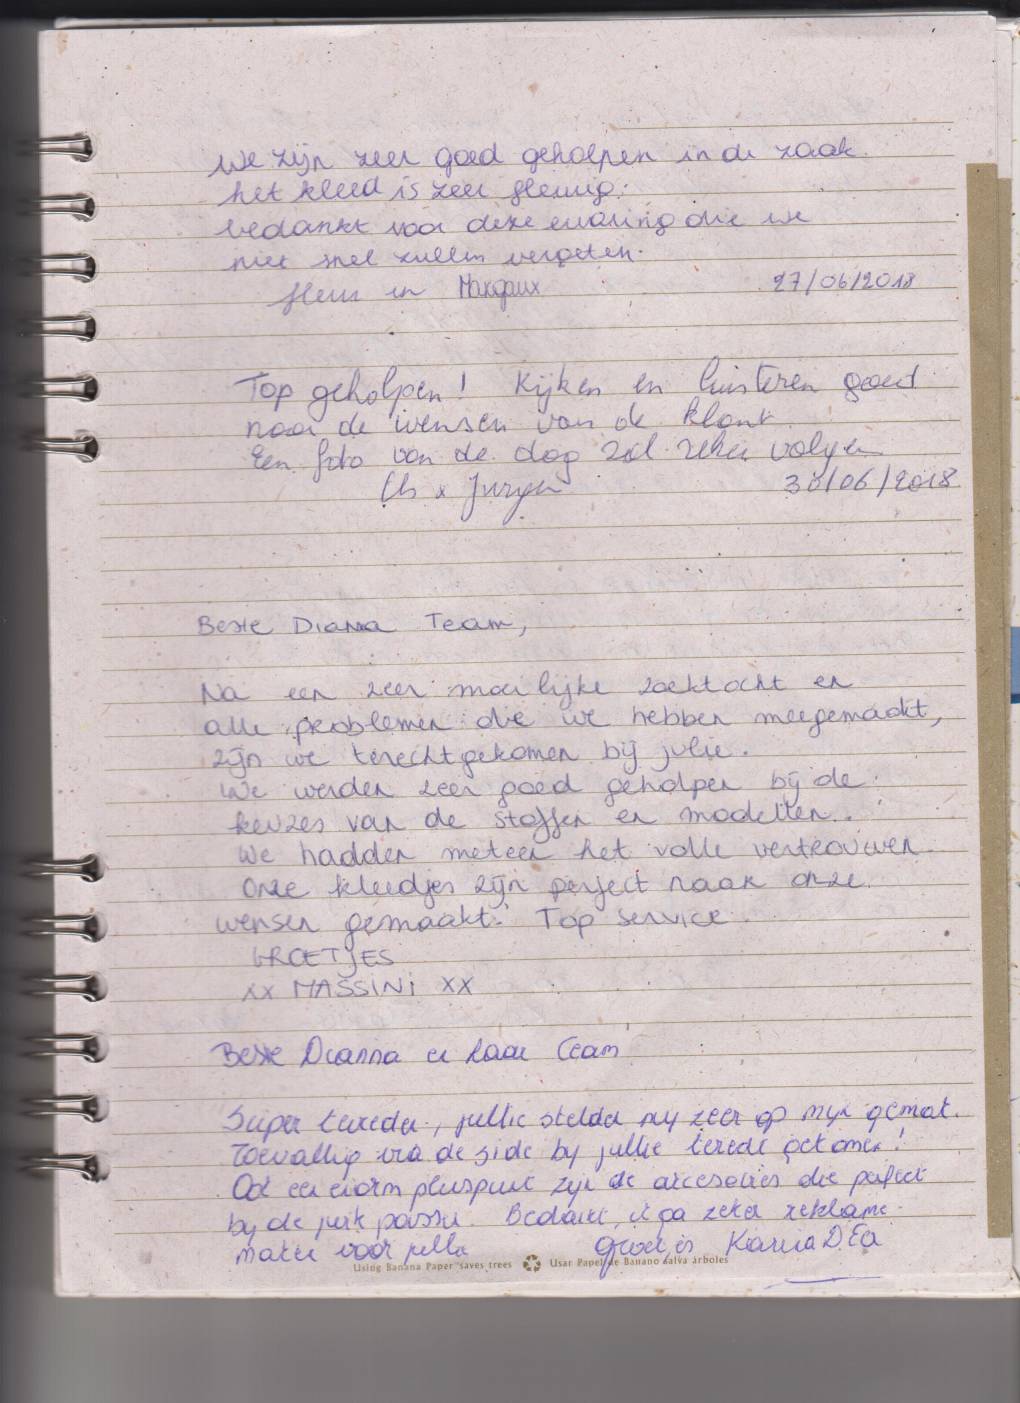 We zijn zeer goed geholpen in de zaak.
het kleed is zeer fleurig.
bedankt voor deze ervaring die we
niet snel zullen vergeten.
fleur en Margaux 27/06/2018
Top geholpen! Kijken en luisteren goed
naar de wensen van de klant.
Een foto van de dag zal zeker volgen
x Jurgen 30/06/2018
Beste Diana Team,
Na een zeer moeilijke zoektocht en
alle problemen die we hebben meegemaakt,
zijn we terechtgekomen bij julie.
We werden zeer goed geholpen bij de
keuzes van de stoffen en modellen.
We hadden meteen het volle vertrouwen.
Onze kleedjes zijn perfect naar onze
wensen gemaakt! Top service.
GROETJES
xx MASSINI xx
Beste Dianna en haar team
Super tevreden, jullie stelden mij zeer op mijn gemak.
Toevallig via de side bij jullie terecht gekomen!
Ook een enorm pluspunt zijn de accesoires die perfect
bij de jurk passen. Bedankt, ik ga zeker reklame
maken voor jullie groetjes Karina
Using Banana Paper saves trees Usar Papel de Banano salva árboles